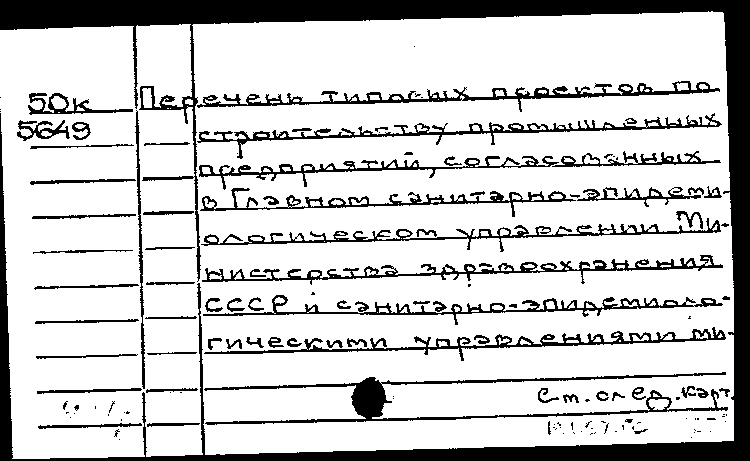 50к Перечень типовых проектов по
5649 строительству промышленных
предприятий, согласованных
в Главном санитарно-эпидеми-
ологическом управлении Ми-
нистерства здравоохранения
СССР и санитарно-эпидемиоло-
гическими управлениями ми-
См. след. карт.